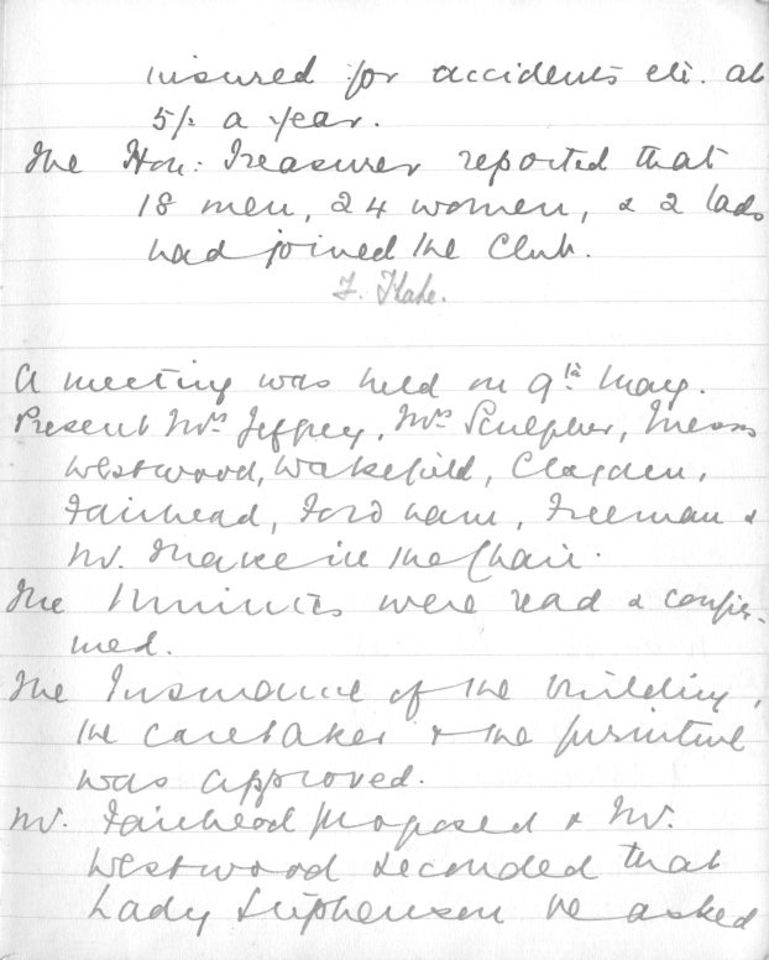 insured for accidents etc. at
5/- a year.
The Hon: Treasurer reported that
18 men, 24 women, & 2 lads
had joined the Club.
A meeting was held on 9th May.
Present Mrs Jeffrey, Mrs Sculpher, Messrs
Westwood, Wakefield, Clayden,
Fairhead, Fordham, Freeman &
Mr. Thake in the Chair.
The Minutes were read & confir-
med.
The Insurance of the building,
the caretaker & the furniture
was approved.
Mr. Fairhead proposed & Mr.
Westwood seconded that
Lady Stephenson be asked